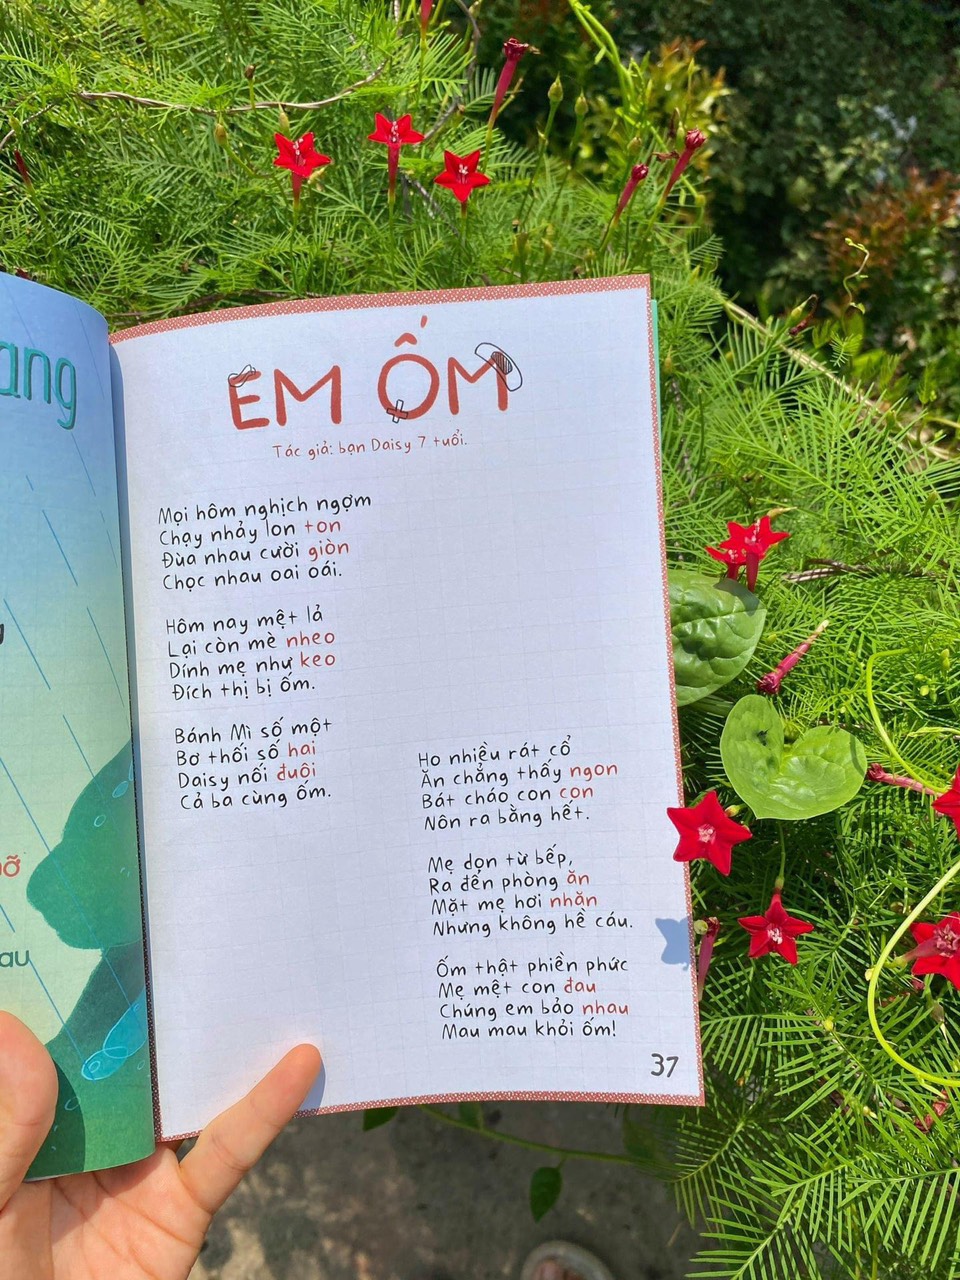 ang
au
EM ỐM
Tác giả: bạn Daisy 7 tuổi.
Mọi hôm nghịch ngợm
Chạy nhảy lon ton
Đùa nhau cười giòn
Chọc nhau oai oái.
Hôm nay mệt lả
Lại còn mè nheo
Dính mẹ như keo
Đích thị bị ốm.
Bánh Mì số một
Bơ thối số hai
Daisy nối đuôi
Cả ba cùng ốm.
Ho nhiều rát cổ
Ăn chẳng thấy ngon
Bát cháo con con
Nôn ra bằng hết.
Mẹ dọn từ bếp,
Ra đến phòng ăn
Mặt mẹ hơi nhăn
Nhưng không hề cáu.
Ốm thật phiền phức
Mẹ mệt con đau
Chúng em bảo nhau
Mau mau khỏi ốm!
37